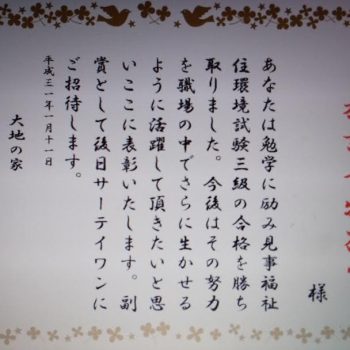 様
あなたは勉学に励み見事福祉
住環境試験三級の合格を勝ち
取りました。今後はその努力
を職場の中でさらに生かせる
ように活躍して頂きたいと思
いここに表彰いたします。副
賞として後日サーティワンに
ご招待します。
平成三一年一月十一日
大地の家